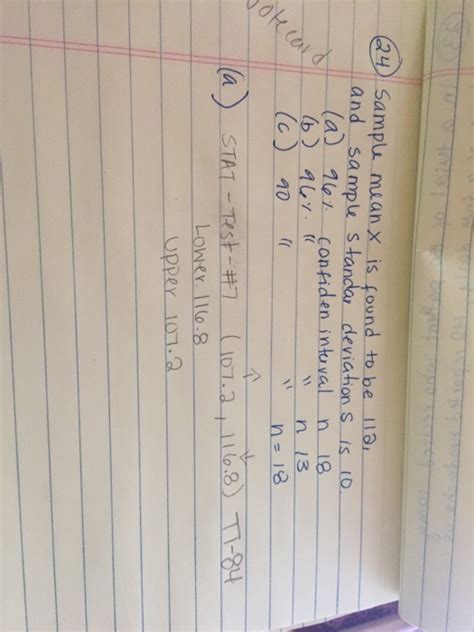 Notecard
(24) Sample mean x is found to be 112,
and sample standar deviation s is 10.
(a) 96% confiden interval n 18
(b) 96% " " n 13
(c) 90 " " n=18
(a) STAT - Test - #7 (107.2, 116.8) TI-84
Lower 116.8
Upper 107.2